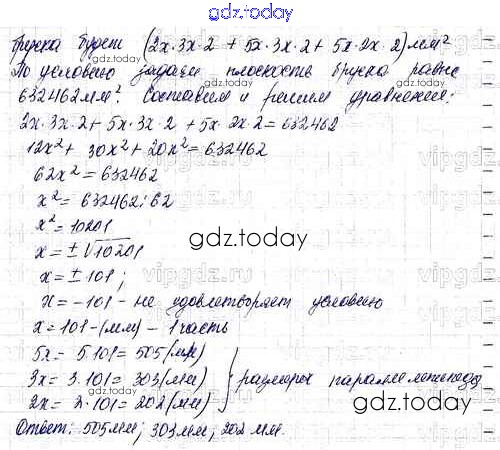 gdz.today
бруска будет (2x·3x·2 + 5x·3x·2 + 5x·2x·2) мм²
По условию задачи плоскость бруска равна
632462 мм². Составим и решим уравнение:
2x·3x·2 + 5x·3x·2 + 5x·2x·2 = 632462
12x² + 30x² + 20x² = 632462
62x² = 632462
x² = 632462:62
x² = 10201
gdz.today
x = ±√10201
x = ±101;
x = -101 - не удовлетворяет условию
x = 101 - (мм) - 1 часть
5x = 5·101 = 505 (мм)
3x = 3·101 = 303 (мм) } размеры параллелепипеда
2x = 2·101 = 202 (мм)
gdz.today
Ответ: 505 мм; 303 мм; 202 мм.
gdz.today